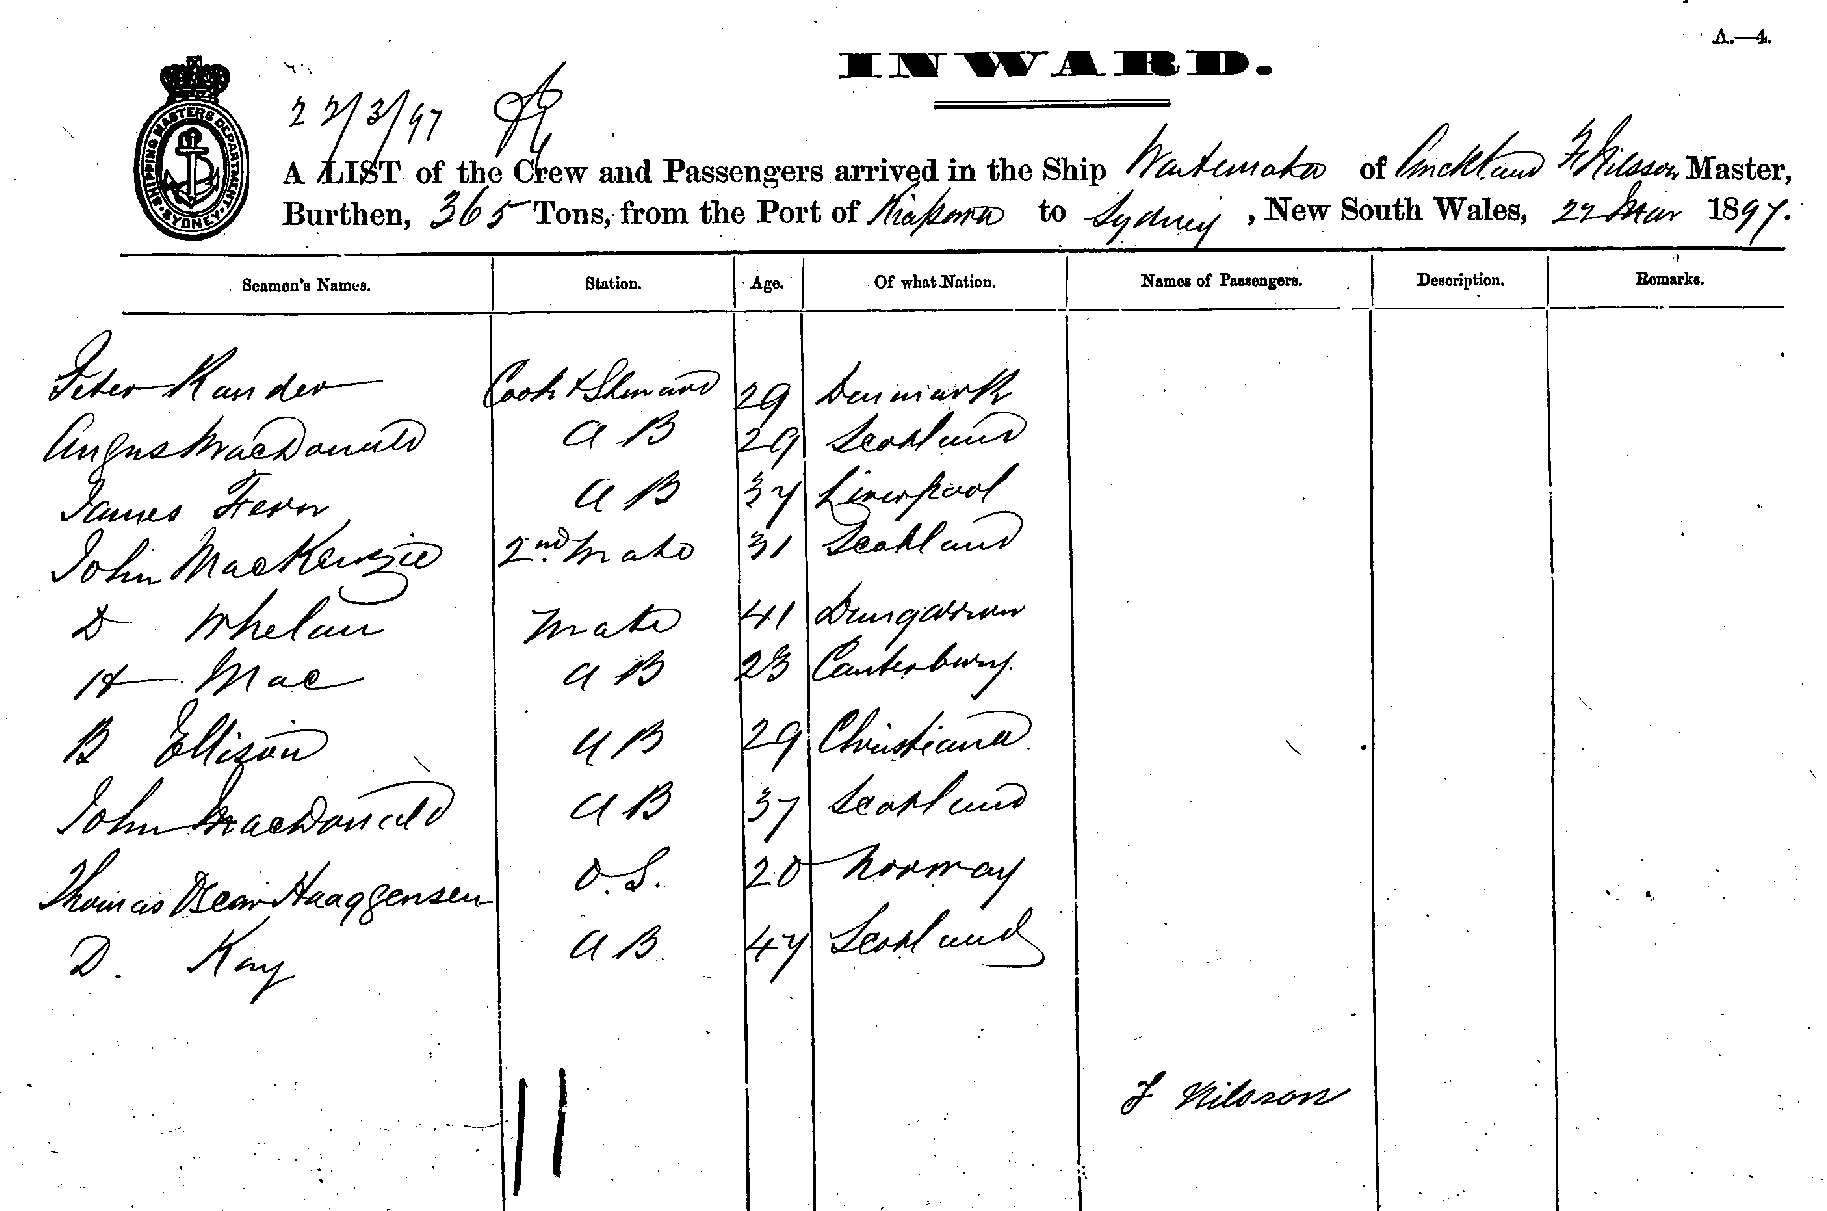 A.—4.
INWARD.
22/3/97
SHIPPING MASTERS DEPARTMENT
SYDNEY
A LIST of the Crew and Passengers arrived in the Ship Waitemata of Auckland F Nilsson Master,
Burthen, 365 Tons, from the Port of to Sydney, New South Wales, 22 Mar 1897.
Seamen's Names. Station. Age. Of what Nation. Names of Passengers. Description. Remarks.
Peter Rander Cook & Steward 29 Denmark
Angus MacDonald A B 29 Scotland
James A B 37 Liverpool
John MacKenzie 2nd Mate 31 Scotland
D Whelan Mate 41 Dungarvan
H Mac A B 23 Canterbury.
B Ellison A B 29 Christiana
John MacDonald A B 37 Scotland
Thomas Oscar Haaggensen O.S. 20 Norway
D. Kay A B 47 Scotland
F Nilsson
11